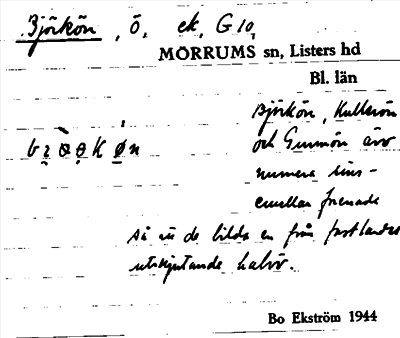 Björkön, ö, ek. G 10,
MÖRRUMS sn, Listers hd
Bl. län
Björkön, Kullerön
och Gunnön äro
numera sins-
emellan förenade
så att de bilda en från fastlandet
utskjutande halvö.
Bo Ekström 1944